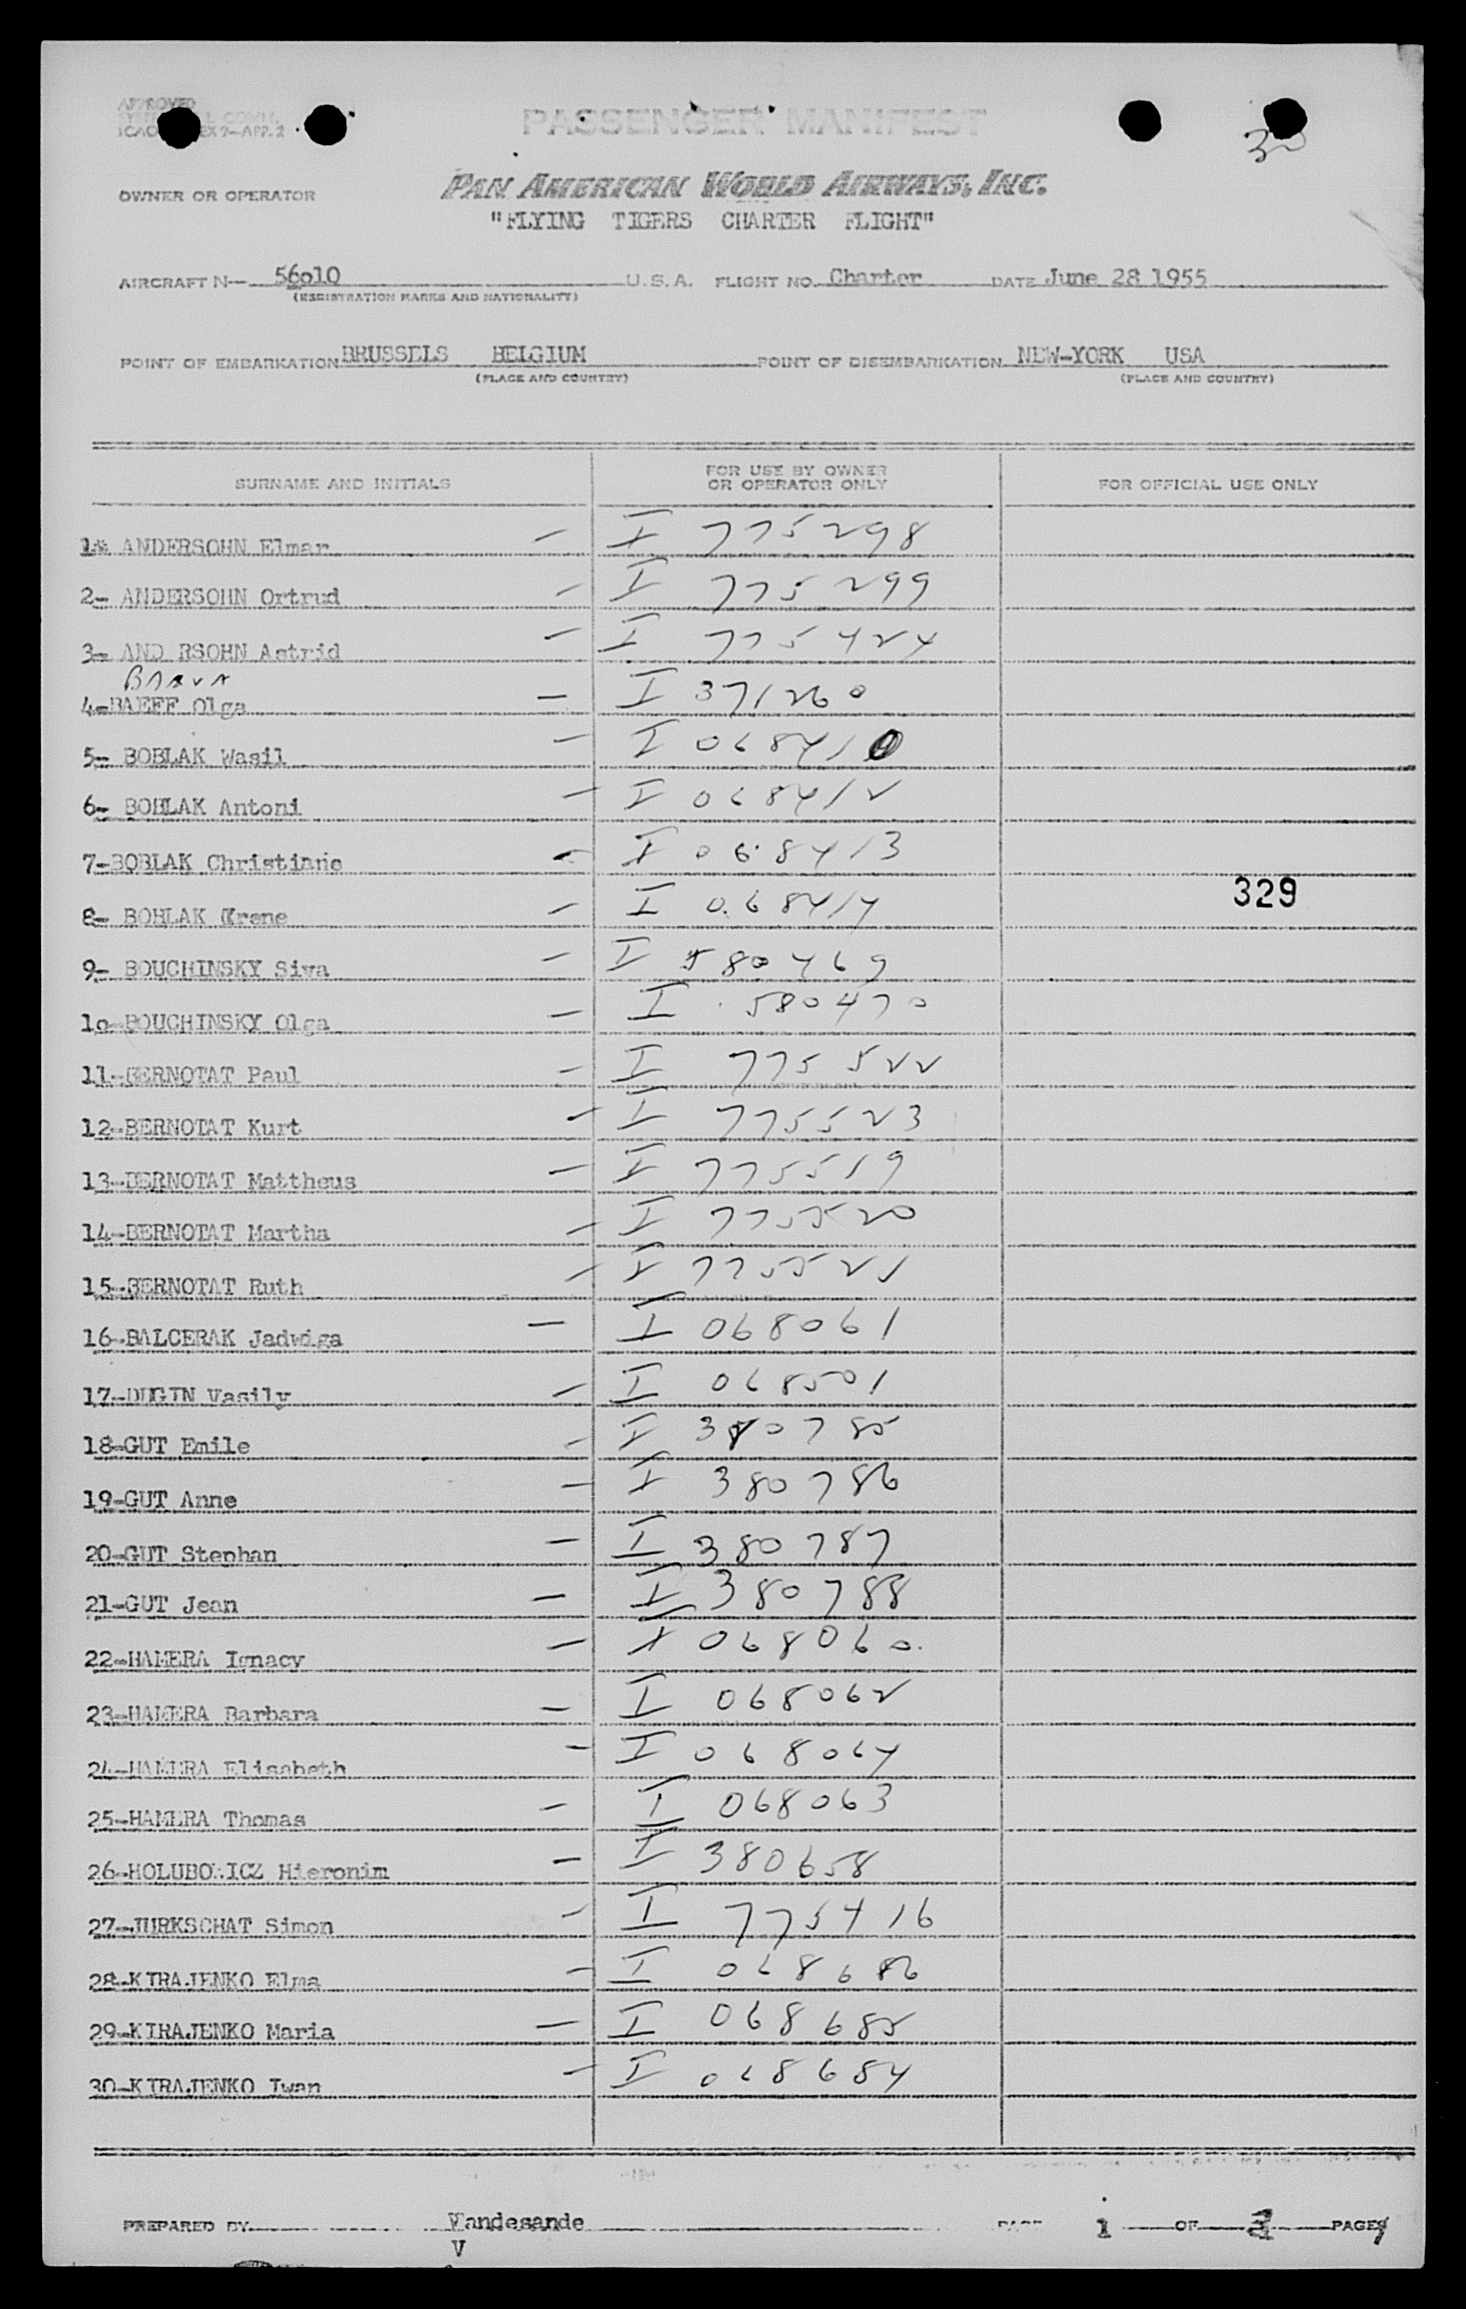 APPROVED
PASSENGER MANIFEST
32
OWNER OR OPERATOR PAN AMERICAN WORLD AIRWAYS, INC.
"FLYING TIGERS CHARTER FLIGHT"
AIRCRAFT N— 56o10 U.S.A. FLIGHT NO. Charter DATE June 28 1955
(REGISTRATION MARKS AND NATIONALITY)
POINT OF EMBARKATION BRUSSELS BELGIUM POINT OF DISEMBARKATION NEW-YORK USA
(PLACE AND COUNTRY) (PLACE AND COUNTRY)
SURNAME AND INITIALS FOR USE BY OWNER OR OPERATOR ONLY FOR OFFICIAL USE ONLY
1- ANDERSOHN Elmar — I 775298
2- ANDERSOHN Ortrud — I 775299
3- AND RSOHN Astrid — I 775424
4-BAEFF Olga — I 371260
5- BOBLAK Wasil — I 068410
6- BOBLAK Antoni — I 068412
7-BOBLAK Christiane — I 068413
8- BOBLAK Irene — I 068414
329
9- BOUCHINSKY Siva — I 580469
1o-BOUCHINSKY Olga — I 580470
11-BERNOTAT Paul — I 775522
12-BERNOTAT Kurt — I 775523
13-BERNOTAT Mattheus — I 775519
14-BERNOTAT Martha — I 775520
15-BERNOTAT Ruth — I 775521
16-BALCERAK Jadwiga — I 068061
17-DUGIN Vasily — I 068501
18-GUT Emile — I 380785
19-GUT Anne — I 380786
20-GUT Stephan — I 380787
21-GUT Jean — I 380788
22-HAMERA Ignacy — I 068060
23-HAMERA Barbara — I 068062
24-HAMERA Elisabeth — I 068064
25-HAMERA Thomas — I 068063
26-HOLUBOWICZ Hieronim — I 380658
27-JURKSCHAT Simon — I 775416
28-KIRAJENKO Elma — I 068686
29-KIRAJENKO Maria — I 068685
30-KIRAJENKO Iwan — I 068684
PREPARED BY Vandesande PAGE 1 OF PAGES
V